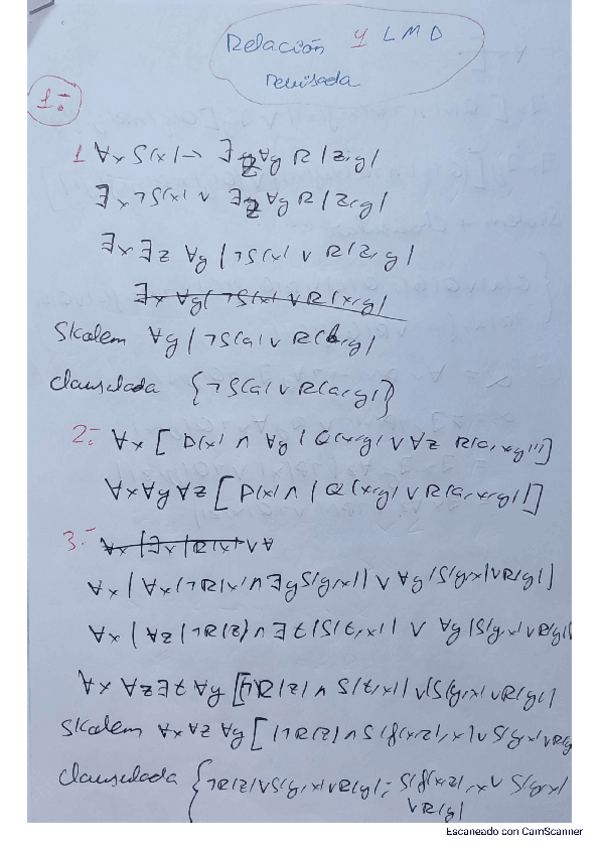 Relación 4 LMD
revisada
1:-
1 ∀x S(x) → ∃z∀y R(z,y)
∃x ¬S(x) ∨ ∃z∀y R(z,y)
∃x ∃z ∀y (¬S(x) ∨ R(z,y))
∃x ∀y( ¬S(x) ∨ R(x,y)
Skolem ∀y (¬S(a) ∨ R(b,y)
clausulada {¬S(a) ∨ R(a,y)}
2:- ∀x [ P(x) ∧ ∀y ( Q(x,y) ∨ ∀z R(a,x,y)))]
∀x∀y∀z [P(x) ∧ (Q(x,y) ∨ R(a,x,y))]
3:-
∀x (∀x(¬R(x) ∧ ∃y S(y,x)) ∨ ∀y (S(y,x) ∨ R(y)]
∀x (∀z (¬R(z) ∧ ∃t (S(t,x)) ∨ ∀y (S(y,x) ∨ R(y)
∀x ∀z∃t ∀y [¬R(z) ∧ S(t,x)) ∨ (S(y,x) ∨ R(y)]
Skolem ∀x∀z ∀y [(¬R(z) ∧ S(f(x,z),x) ∨ S(y,x) ∨ R(y)
clausulada {¬R(z) ∨ S(y,x) ∨ R(y); S(f(x,z),x ∨ S(y,x)
∨ R(y)
Escaneado con CamScanner